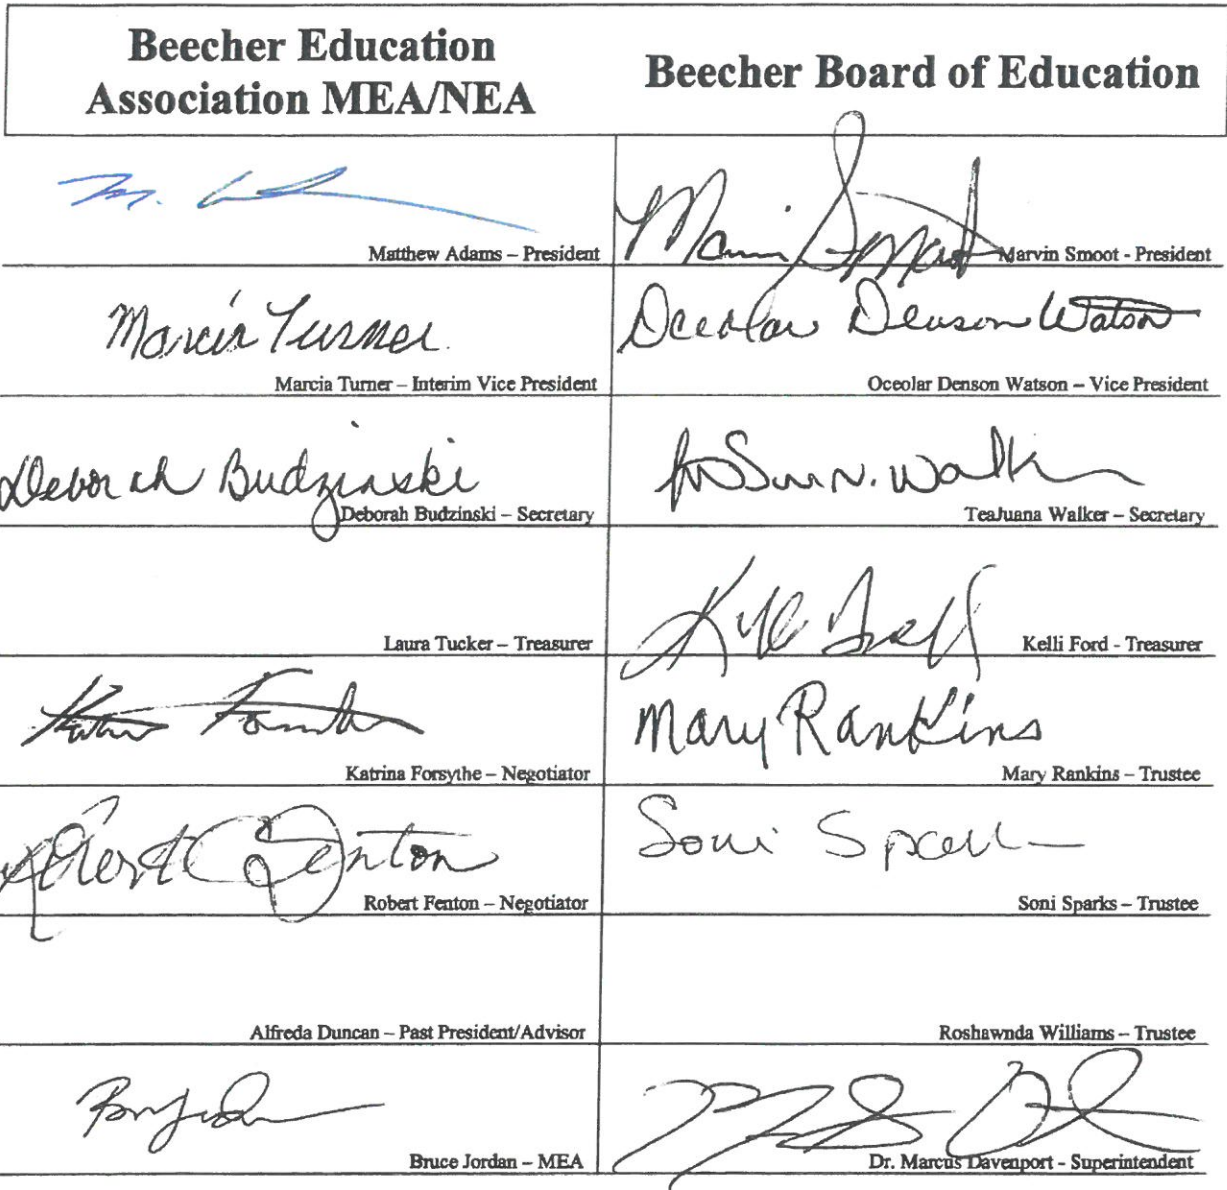 Beecher Education
Association MEA/NEA
Beecher Board of Education
M.
Matthew Adams – President
Marvin Smoot
Marvin Smoot - President
Marcia Turner
Marcia Turner – Interim Vice President
Oceolar Denson Watson
Oceolar Denson Watson – Vice President
Deborah Budzinski
Deborah Budzinski – Secretary
N. Walker
TeaJuana Walker – Secretary
Laura Tucker – Treasurer
Kelli Ford - Treasurer
Katrina Forsythe – Negotiator
Mary Rankins
Mary Rankins – Trustee
Robert C Fenton
Robert Fenton – Negotiator
Soni Sparks
Soni Sparks – Trustee
Alfreda Duncan – Past President/Advisor
Roshawnda Williams – Trustee
Bruce Jordan – MEA
Dr. Marcus Davenport - Superintendent